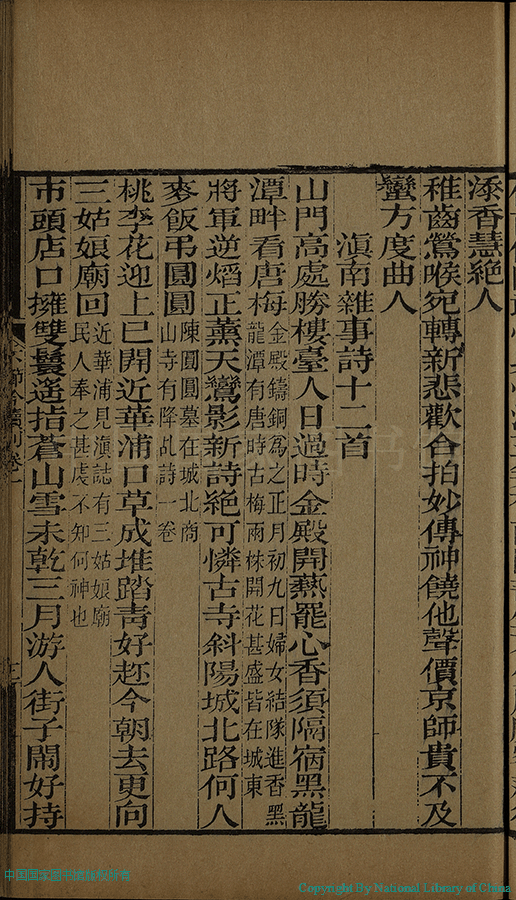 添香慧絕人
稚齒鶯喉宛轉新悲歡合拍妙傳神饒他聲價京師貴不及
蠻方度曲人
滇南雜事詩十二首
山門高處勝樓臺人日過時金殿開爇罷心香須隔宿黑龍
潭畔看唐梅金殿鑄銅爲之正月初九日婦女結隊進香黑
龍潭有唐時古梅兩株開花甚盛皆在城東
將軍逆熖正薰天鸞影新詩絕可憐古寺斜陽城北路何人
麥飯弔圓圓陳圓圓墓在城北商
山寺有降乩詩一卷
桃李花迎上巳開近華浦口草成堆踏靑好趂今朝去更向
三姑娘廟回近華浦見滇誌有三姑娘廟
民人奉之甚虔不知何神也
市頭店口擁雙鬟遙指蒼山雪未乾三月游人街子鬧好持
卷一
中国国家图书馆版权所有
Copyright By National Library of China